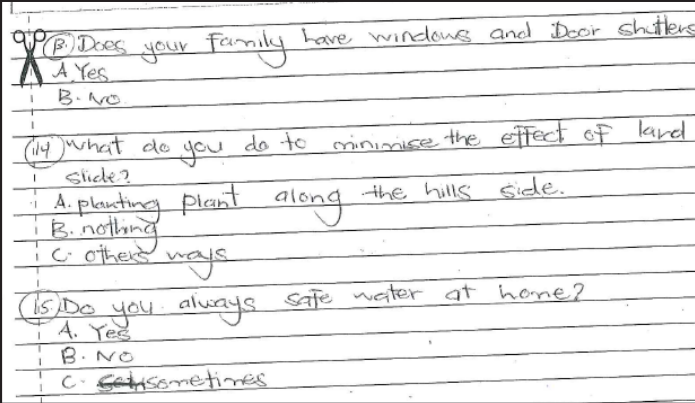 13. Does your family have windows and Door shutters
A. Yes
B. No
14) What do you do to minimise the effect of land
slide?
A. planting plant along the hills side.
B. nothing
C. others ways
15. Do you always safe water at home?
A. Yes
B. No
C. sometimes